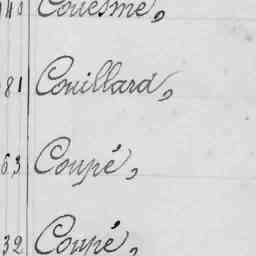 40 Couesme,
81 Couillard,
63 Coupé,
32 Coupé,